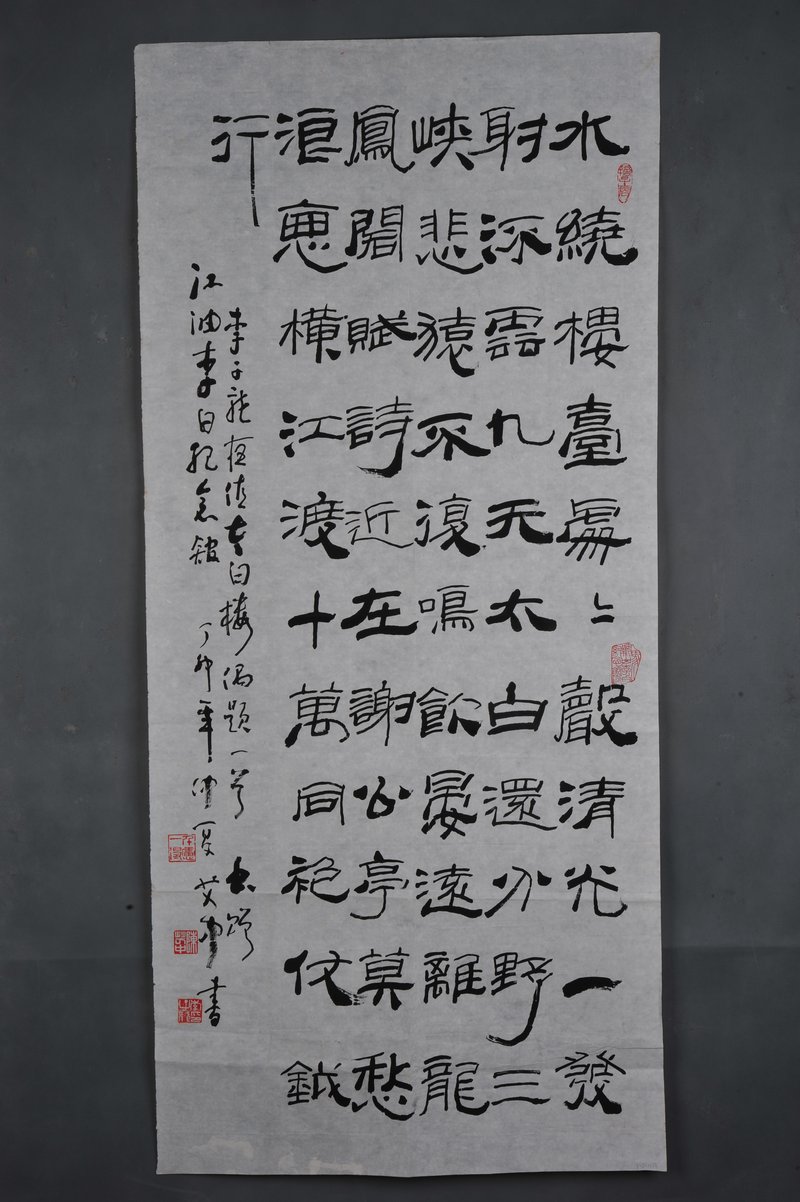 水繞樓臺處〻聲清光一發
射雲九天太白還分野三
峽悲猿不復鳴飲晏遠離龍
鳳閣賦詩近在謝公亭莫愁
浪惡橫江渡十萬同袍仗鉞
行
李子龍夜值太白樓偶題一首 書贈
江油李白紀念館 丁卯年仲夏 艾中書